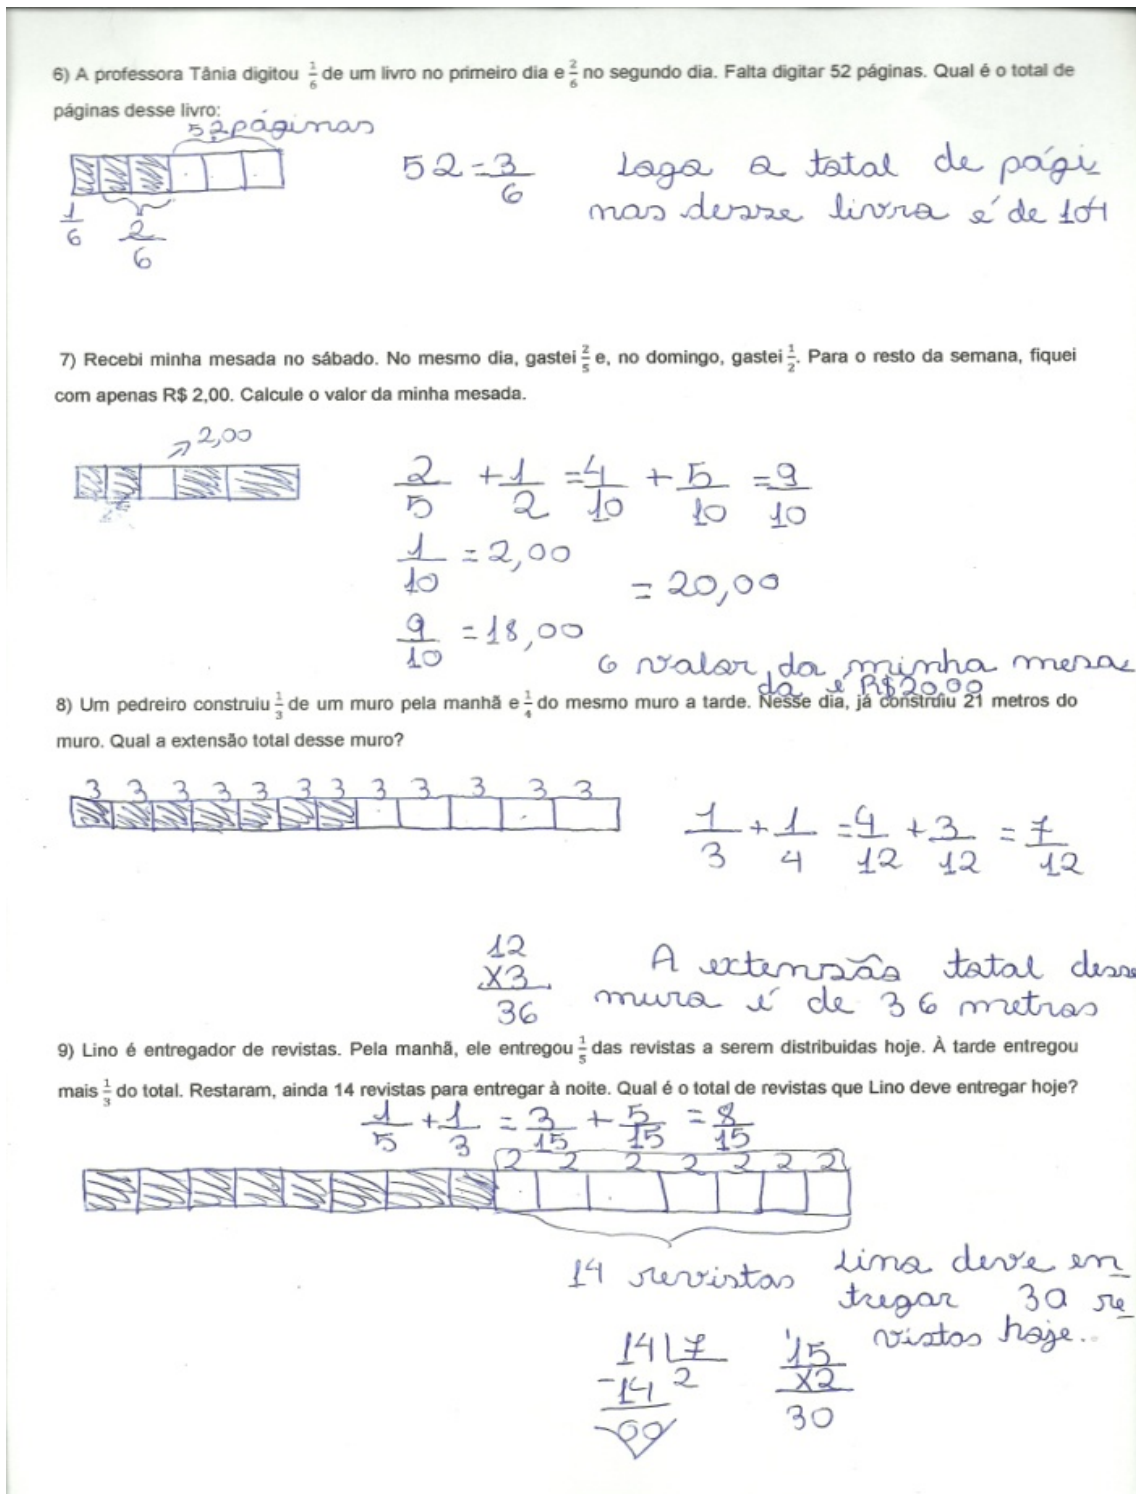 6) A professora Tânia digitou 1/6 de um livro no primeiro dia e 2/6 no segundo dia. Falta digitar 52 páginas. Qual é o total de
páginas desse livro:
52 páginas
1/6 2/6
52 = 3/6
Logo o total de pági
nas desse livro é de 104
7) Recebi minha mesada no sábado. No mesmo dia, gastei 2/5 e, no domingo, gastei 1/2. Para o resto da semana, fiquei
com apenas R$ 2,00. Calcule o valor da minha mesada.
2,00
2/5 + 1/2 = 4/10 + 5/10 = 9/10
1/10 = 2,00
= 20,00
9/10 = 18,00
O valor da minha mesa
da é R$20,00
8) Um pedreiro construiu 1/3 de um muro pela manhã e 1/4 do mesmo muro a tarde. Nesse dia, já construiu 21 metros do
muro. Qual a extensão total desse muro?
3 3 3 3 3 3 3 3 3 3 3 3
1/3 + 1/4 = 4/12 + 3/12 = 7/12
12
x3
36
A extensão total desse
muro é de 36 metros
9) Lino é entregador de revistas. Pela manhã, ele entregou 1/5 das revistas a serem distribuidas hoje. À tarde entregou
mais 1/3 do total. Restaram, ainda 14 revistas para entregar à noite. Qual é o total de revistas que Lino deve entregar hoje?
1/5 + 1/3 = 3/15 + 5/15 = 8/15
2 2 2 2 2 2 2
14 revistas
Lino deve en
tregar 30 re
vistas hoje.
14 7
-14 2
00
1
15
x2
30